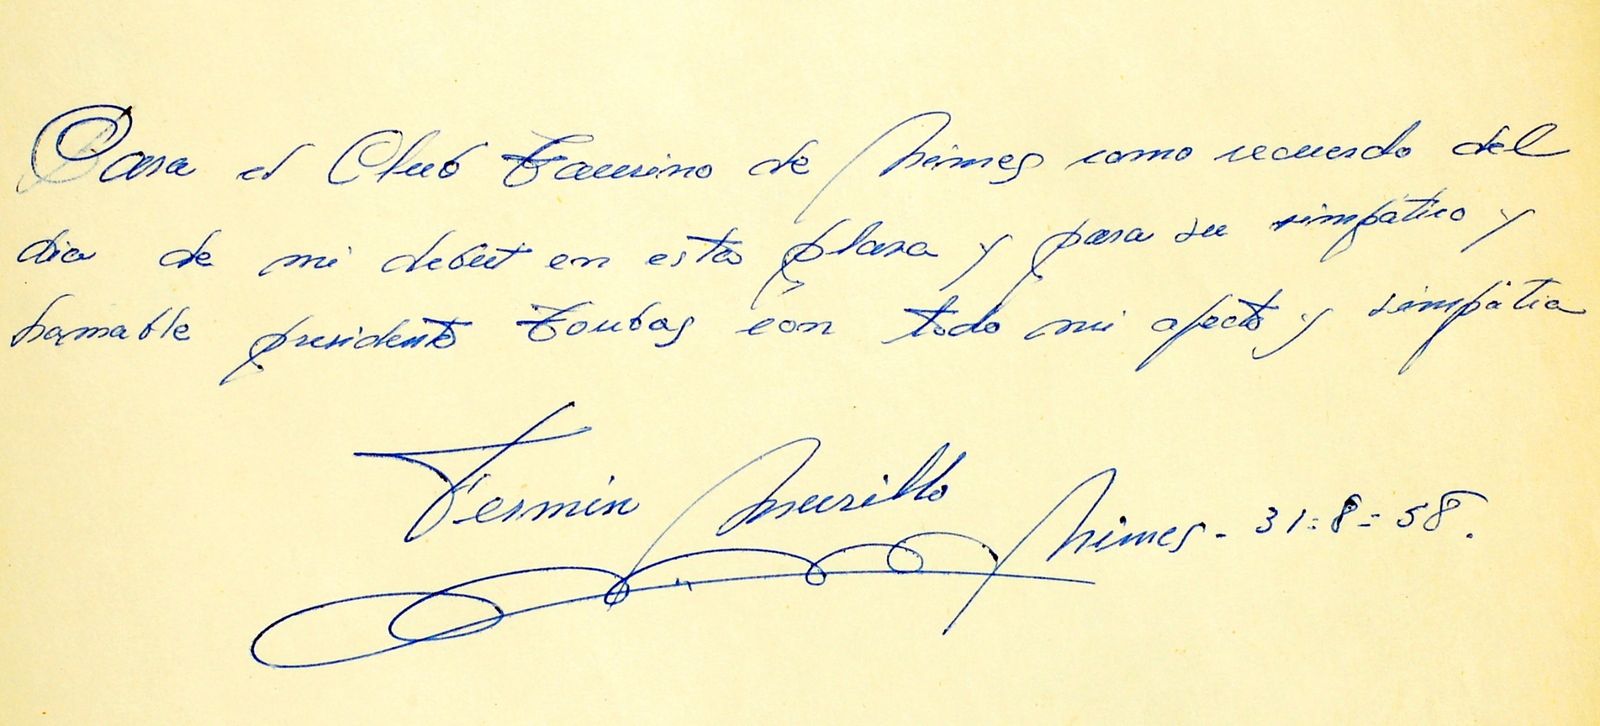 Para el Club Taurino de Nimes como recuerdo del
dia de mi debut en esta plaza y para su simpático y
hamable presidente Toubas con todo mi afecto y simpátia
Fermin Murillo
Nimes - 31=8=58.